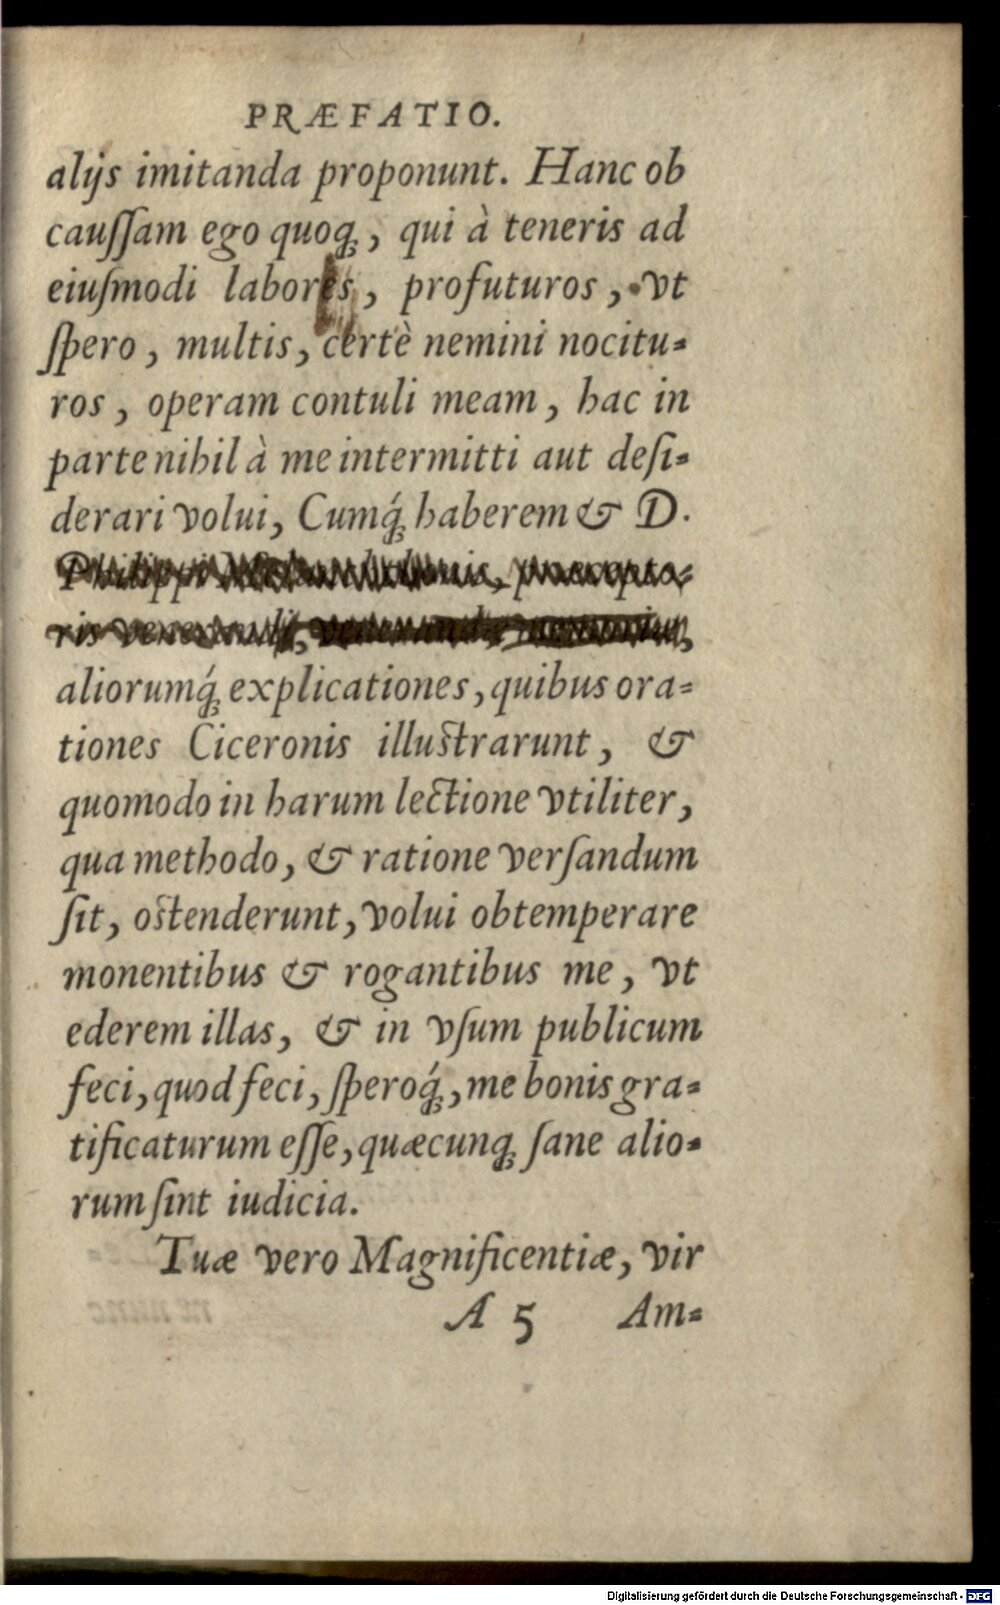 PRÆFATIO.
alijs imitanda proponunt. Hanc ob
cauſſam ego quoq;, qui à teneris ad
eiuſmodi labores, profuturos, vt
ſpero, multis, certè nemini nocitu-
ros, operam contuli meam, hac in
parte nihil à me intermitti aut deſi-
derari volui, Cumq́; haberem & D.
Philippi
ris
aliorumq́; explicationes, quibus ora-
tiones Ciceronis illuſtrarunt, &
quomodo in harum lectione vtiliter,
qua methodo, & ratione verſandum
ſit, oſtenderunt, volui obtemperare
monentibus & rogantibus me, vt
ederem illas, & in vſum publicum
feci, quod feci, ſperoq́;, me bonis gra-
tificaturum eſſe, quæcunq; ſane alio-
rum ſint iudicia.
Tuæ vero Magnificentiæ, vir
A 5 Am-
Digitalisierung gefördert durch die Deutsche Forschungsgemeinschaft - DFG